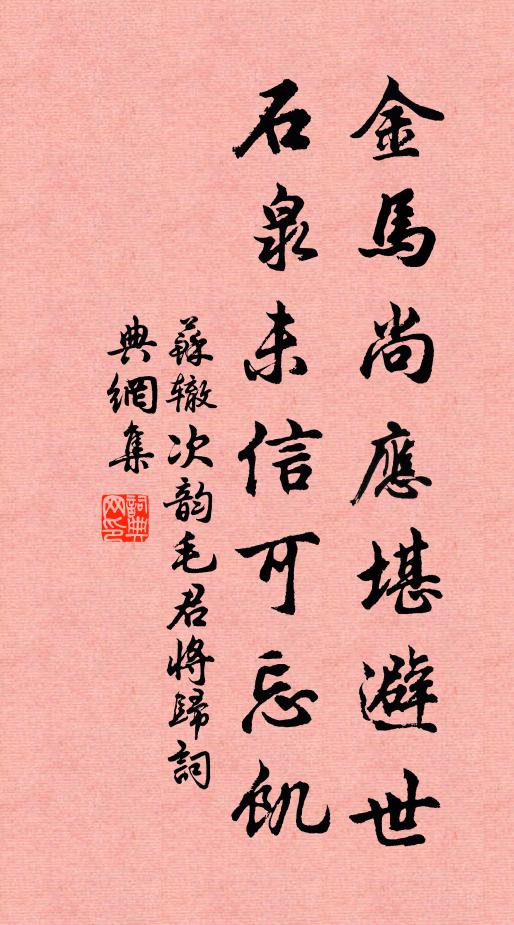 金馬尚應堪避世
石泉未信可忘飢
蘇辙次韵毛君將歸詞
典網集
詞典
网印